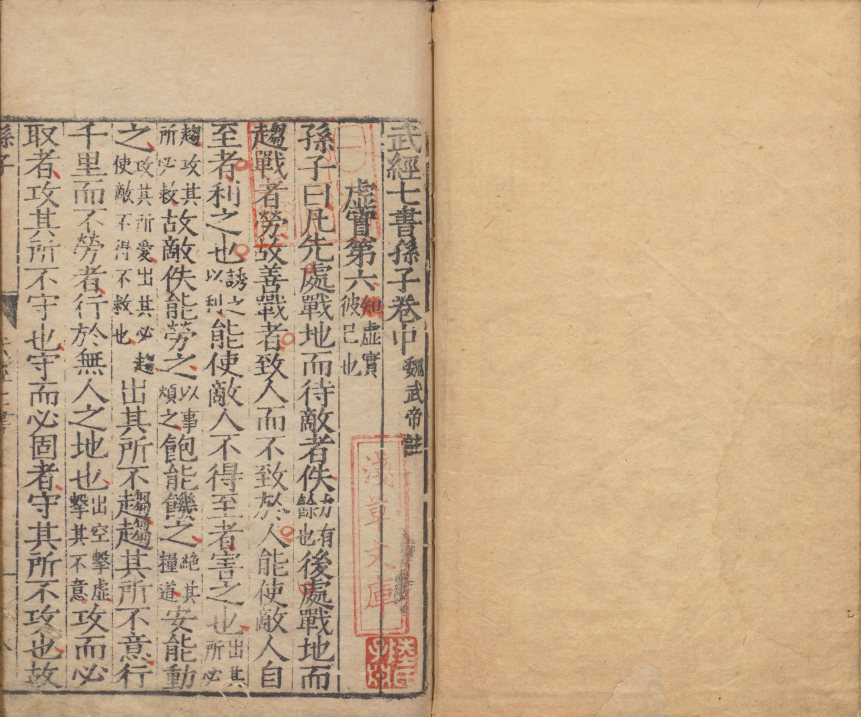 武經七書孫子卷中 魏武帝註
虛實第六 知虛實彼己也
孫子曰凡先處戰地而待敵者佚 力有餘也 後處戰地而
趨戰者勞故善戰者致人而不致於人能使敵人自
至者利之也 誘之以利 能使敵人不得至者害之也 出其所必
趨攻其所必救 故敵佚能勞之 以事煩之 飽能饑之 絕其糧道 安能動
之 攻其所愛出其必趨使敵不得不救也 出其所不趨趨其所不意行
千里而不勞者行於無人之地也 出空擊虛擊其不意 攻而必
取者攻其所不守也守而必固者守其所不攻也故
孫子
淺草文庫